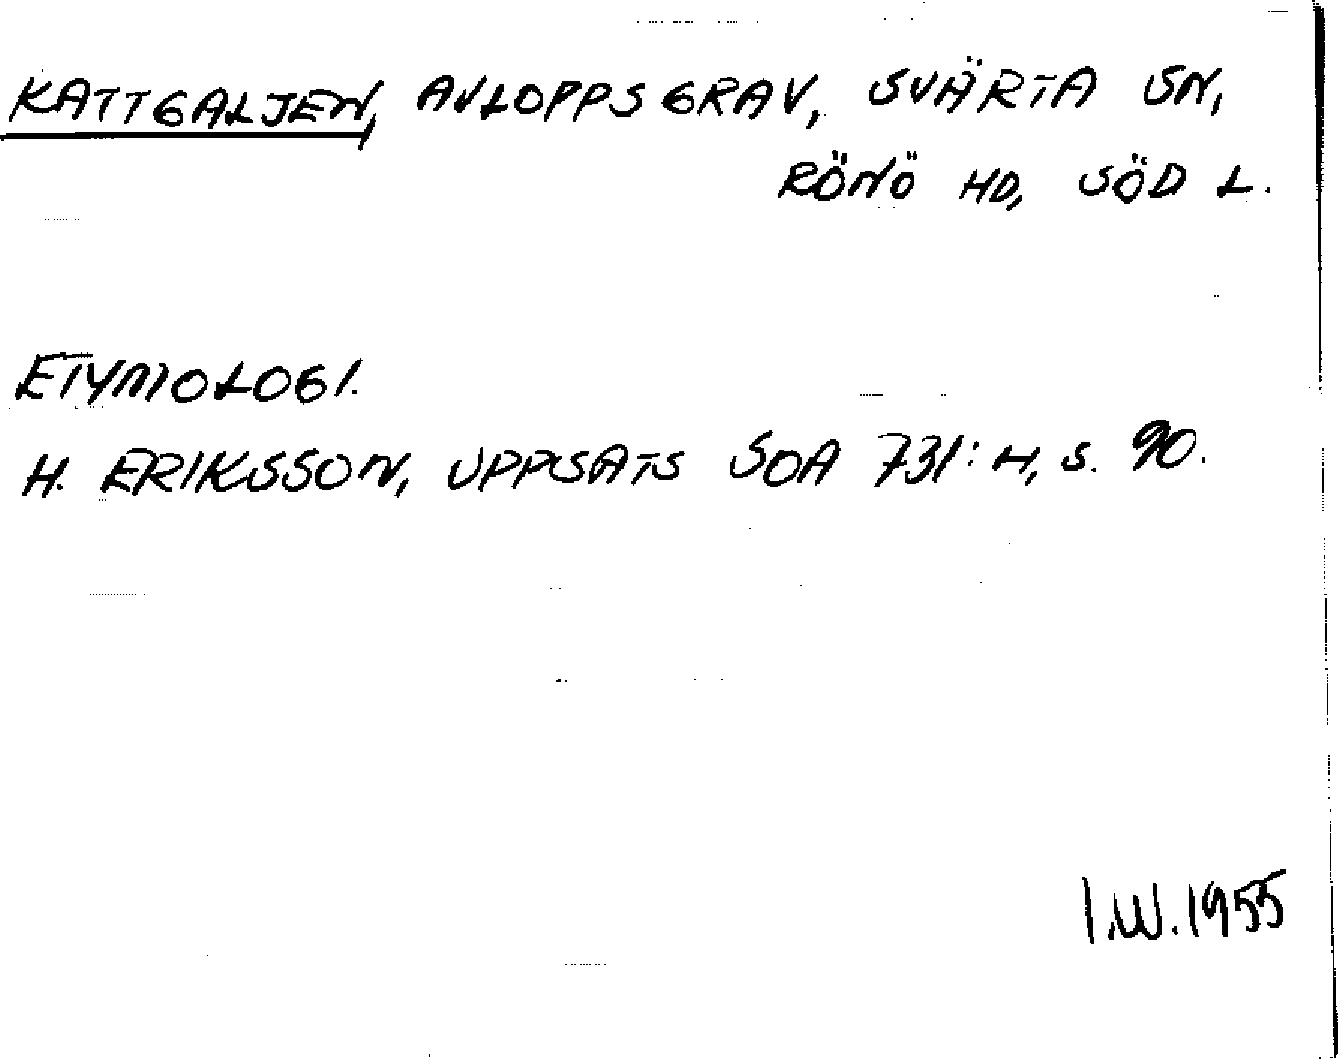 KATTGALJEN, AVLOPPSGRAV, SVÄRTA SN,
RÖNÖ HD, SÖD L.
ETYMOLOGI.
H. ERIKSSON, UPPSATS SOA 731:4, S. 90.
I.W. 1955